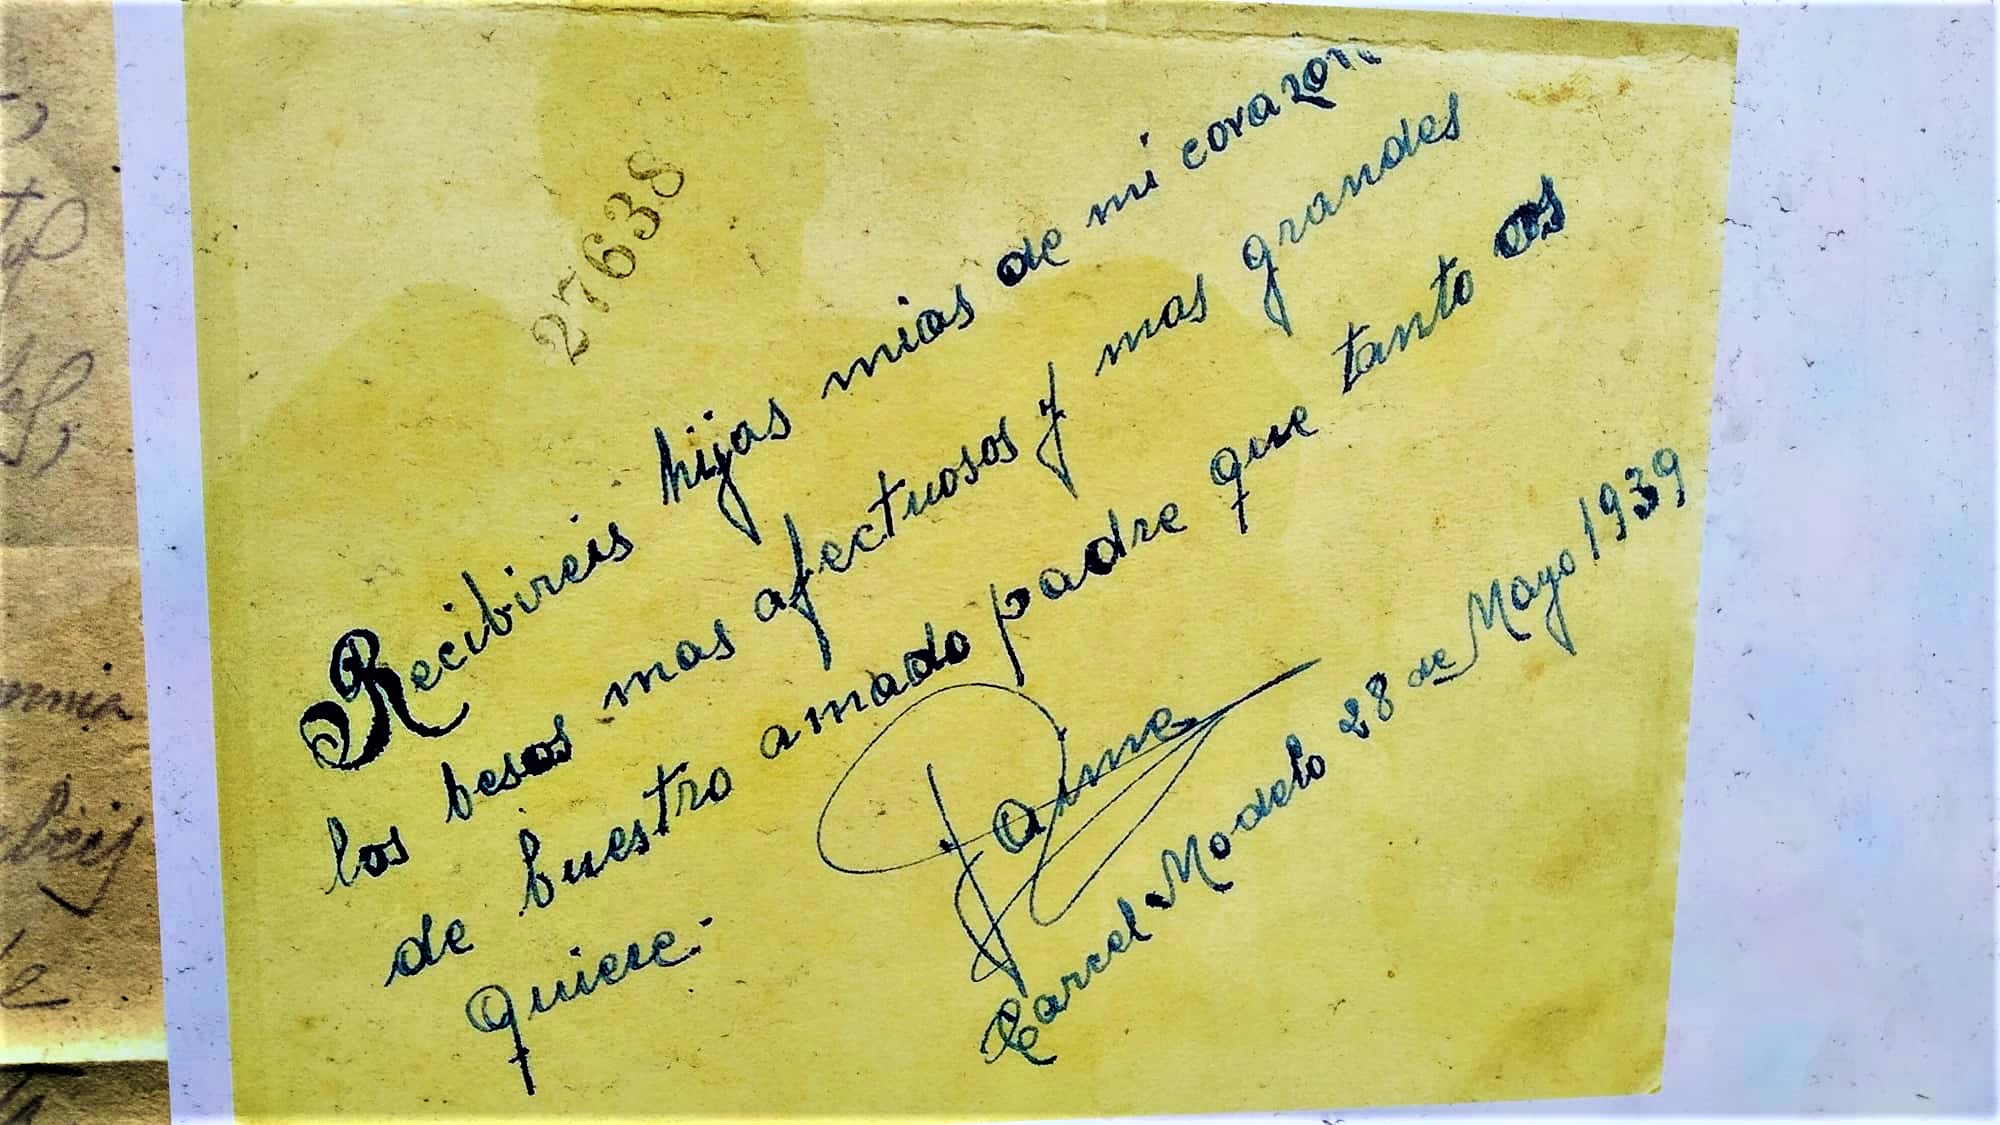 27638
Recibireis hijas mias de mi corazon
los besos mas afectuosos y mas grandes
de buestro amado padre que tanto os
quiere.
Jaime
Carcel Modelo 28 de Mayo 1939